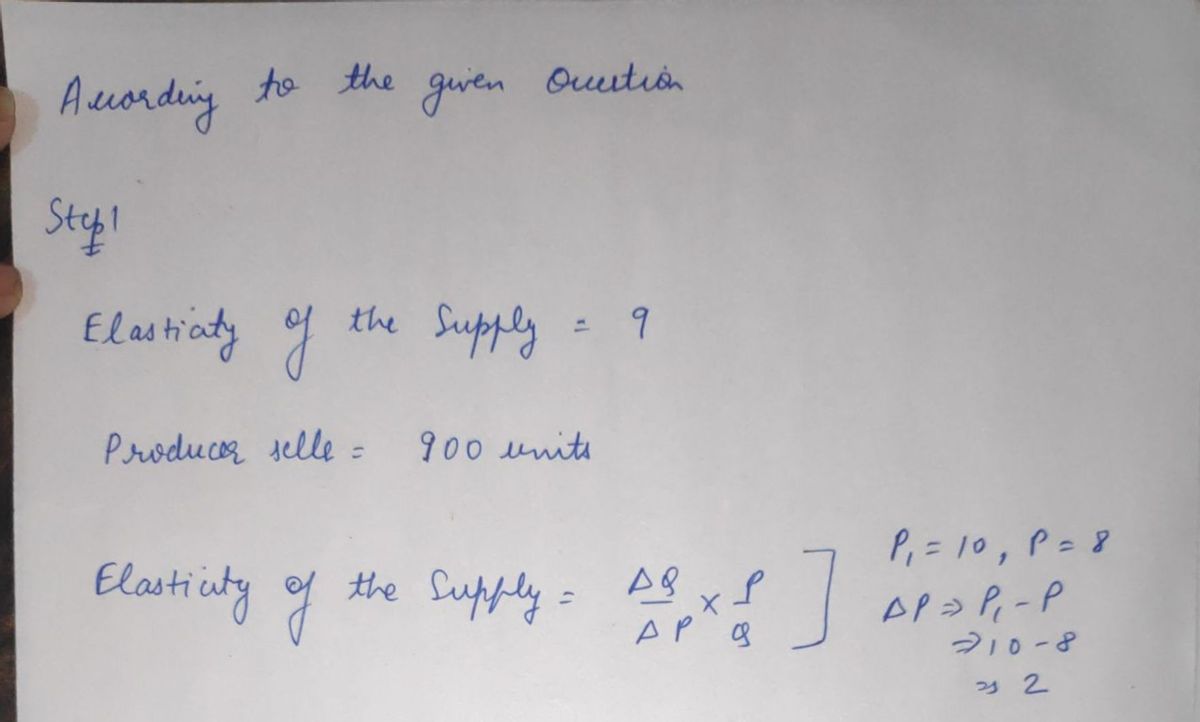 According to the given Question
Step 1
Elasticity of the Supply = 9
Producer sells = 900 units
Elasticity of the Supply = ΔQ/ΔP × P/Q ] P₁ = 10, P = 8
ΔP ⇒ P₁ - P
⇒ 10 - 8
⇒ 2